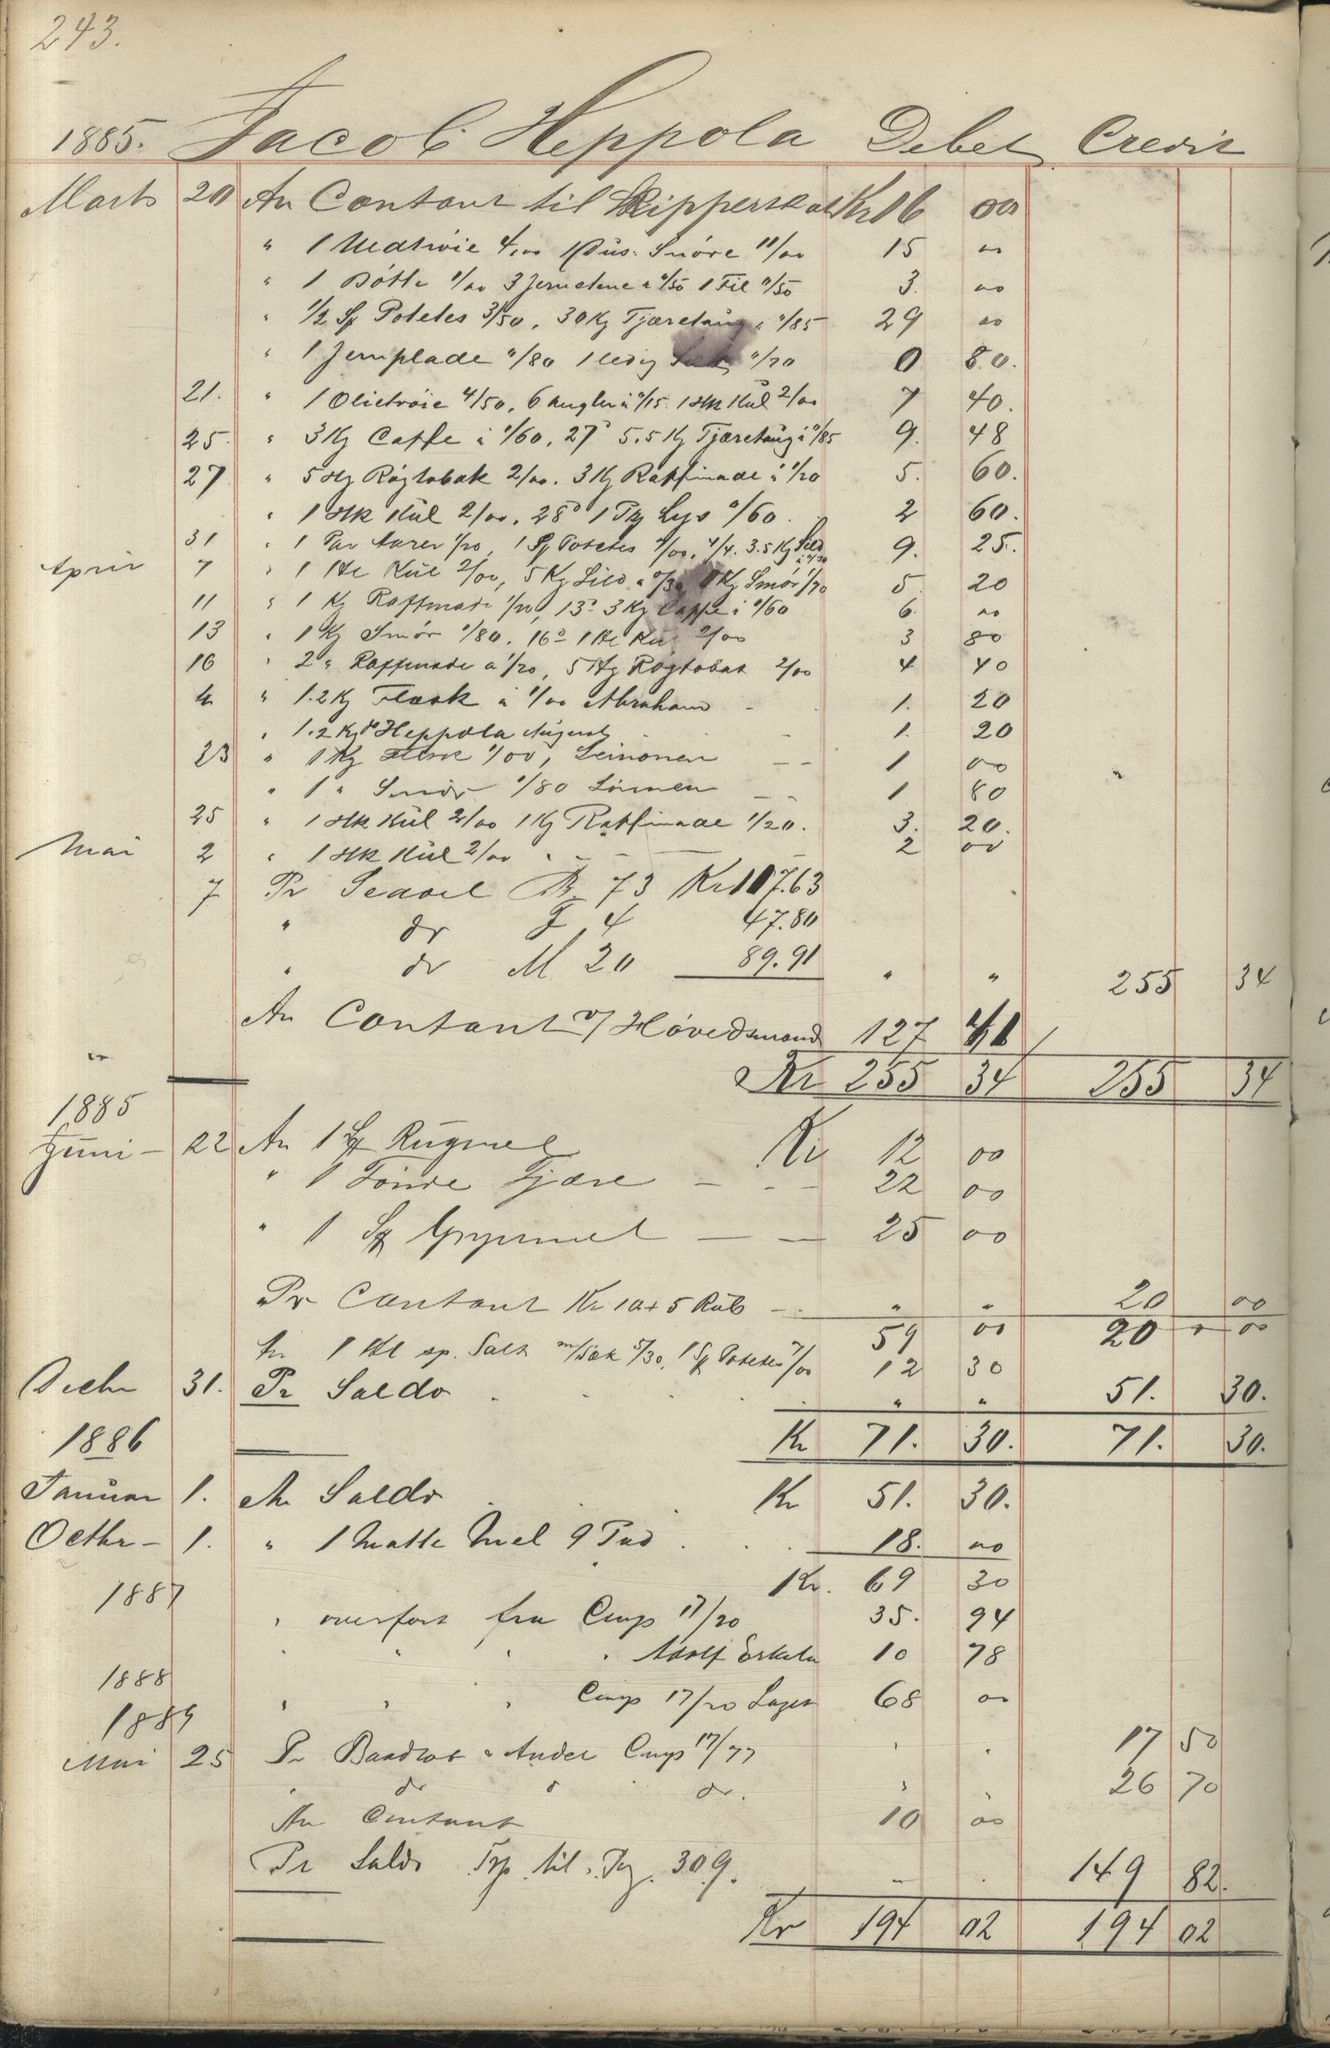 243.
1885. Jacob Heppola Debet Credit
Marts 20 An Contant til Skipperskat Kr 16 00
" 1 4/00 1 Dus. Snöre 11/00 15 00
" 1 Bötte 1/00 3 à 0/50 1 Fil 0/50 3 00
" 1/2 Sp Potetes 3/50, 30 Kg Tjæretaug à 0/85 29 00
" 1 Jernplade 0/80 1 0/70 0 80.
21. " 1 Olietröie 4/50, 6 Angler à 0/15. 1 Hk Kul 2/00 7 40.
25. " 3 Kg Caffe à 1/60, 27de 5.5 Kg Tjæretaug à 0/85 9. 48
27 " 5 Hg Rögtobak 2/00. 3 Kg Raffinade à 1/20 5. 60.
" 1 Hk Kul 2/00, 28de 1 Pk Lys 0/60 2 60.
31 " 1 Par Aarer 1/20, 1 Sp Potetes 7/00, 4/4. 3.5 Kg Sild à 0/30 9. 25.
April 7 " 1 Hl Kul 2/00, 5 Kg Sild à 0/30, 1 Kg Smör 1/70 5. 20
11 " 1 Kg Raffinade 1/20, 13de 3 Kg Caffe à 1/60 6. 00
13 " 1 Kg Smör 1/80. 16de 1 Hl Kul 2/00 3 80
16 " 2 " Raffinade a 1/20, 5 Hg Rögtobak 2/00 4 40
4 " 1.2 Kg Flæsk à 1/00 Abraham - 1. 20
" 1.2 Kg do Heppola August - 1. 20
23 " 1 Kg Flesk 1/00, Leinonen - - 1 00
" 1 " Smör 1/80 - - 1 80
25 " 1 Hk Kul 2/00 1 Kg Raffinade 1/20. 3. 20.
Mai 2 " 1 Hk Kul 2/00 - - - - 2 00
7 Pr Seddel B 73 Kr 117.63
" do F 4 47.80
" do M 20 89.91 " " 255 34
An Contant v/ Hövedsmand 127 41
Kr 255 34 255 34
1885
Juni - 22 An 1 Sk Rugmel Kr 12 00
" 1 Tönde Tjære - - - 22 00
" 1 Sk Grynmel - - 25 00
Pr Contant Kr 10 + 5 Rub - " " 20 00
59 00 20 00
An 1 Hl sp. Salt m/Sæk 5/30, 1 Sk Potetes 7/00 12 30
Decbr 31. Pr Saldo . . . . " " 51. 30.
Kr 71. 30. 71. 30.
1886
Januar 1. An Saldo . . . Kr 51. 30.
Octbr - 1. " 1 Matte Mel 9 Pud . . . 18. 00
Kr. 69 30
1887
" overfört fra Comp 17/20 35. 94
" " " " Adolf Erkela 10 78
1888
" " " Comp 17/20 Laget 68 00
1889
Mai 25 Pr Baadlot & Andel Comp 17/77 " " 17 50
" do " do. " " 26 70
An Contant 10 00
Pr Saldo Trp. til Pag. 309. - . 149 82.
Kr 194 02 194 02